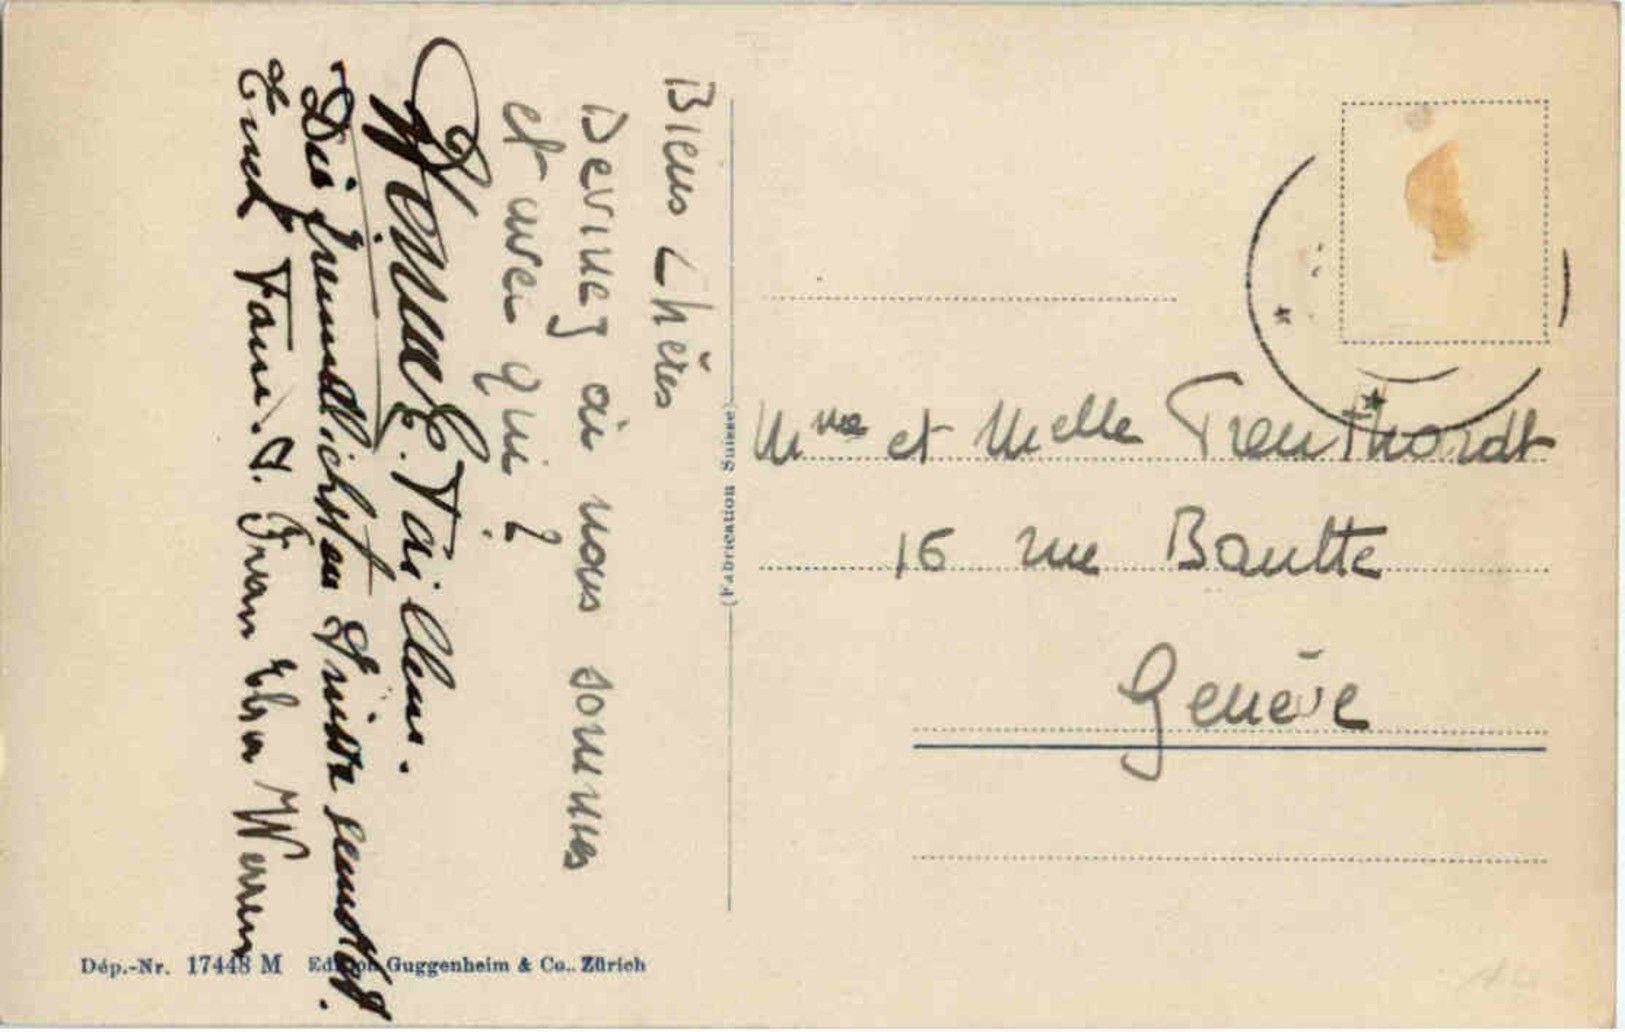 Biens Chères
Devinez où nous sommes
et avec qui ?
E. Taillens.
Die freundlichsten Grüsse sendet
Euch Fam. J. Frau
Mme et Melle Treuthardt
16 rue Bautte
Genève
(Fabrication Suisse)
Dép.-Nr. 17448 M Edition Guggenheim & Co., Zürich